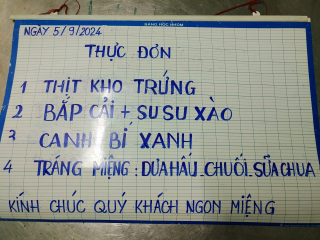 BẢNG HỌC NHÓM
NGÀY 5/9/2024
THỰC ĐƠN
1 THỊT KHO TRỨNG
2 BẮP CẢI + SU SU XÀO
3 CANH BÍ XANH
4 TRÁNG MIỆNG : DƯA HẤU _ CHUỐI _ SỮA CHUA
KÍNH CHÚC QUÝ KHÁCH NGON MIỆNG